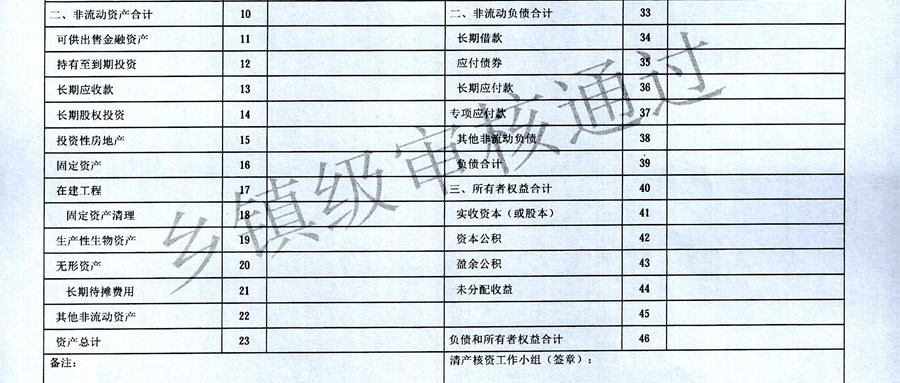 二、非流动资产合计 10 二、非流动负债合计 33
可供出售金融资产 11 长期借款 34
持有至到期投资 12 应付债券 35
长期应收款 13 长期应付款 36
长期股权投资 14 专项应付款 37
投资性房地产 15 其他非流动负债 38
固定资产 16 负债合计 39
在建工程 17 三、所有者权益合计 40
固定资产清理 18 实收资本（或股本） 41
生产性生物资产 19 资本公积 42
无形资产 20 盈余公积 43
长期待摊费用 21 未分配收益 44
其他非流动资产 22 45
资产总计 23 负债和所有者权益合计 46
备注： 清产核资工作小组（签章）：
乡镇级审核通过